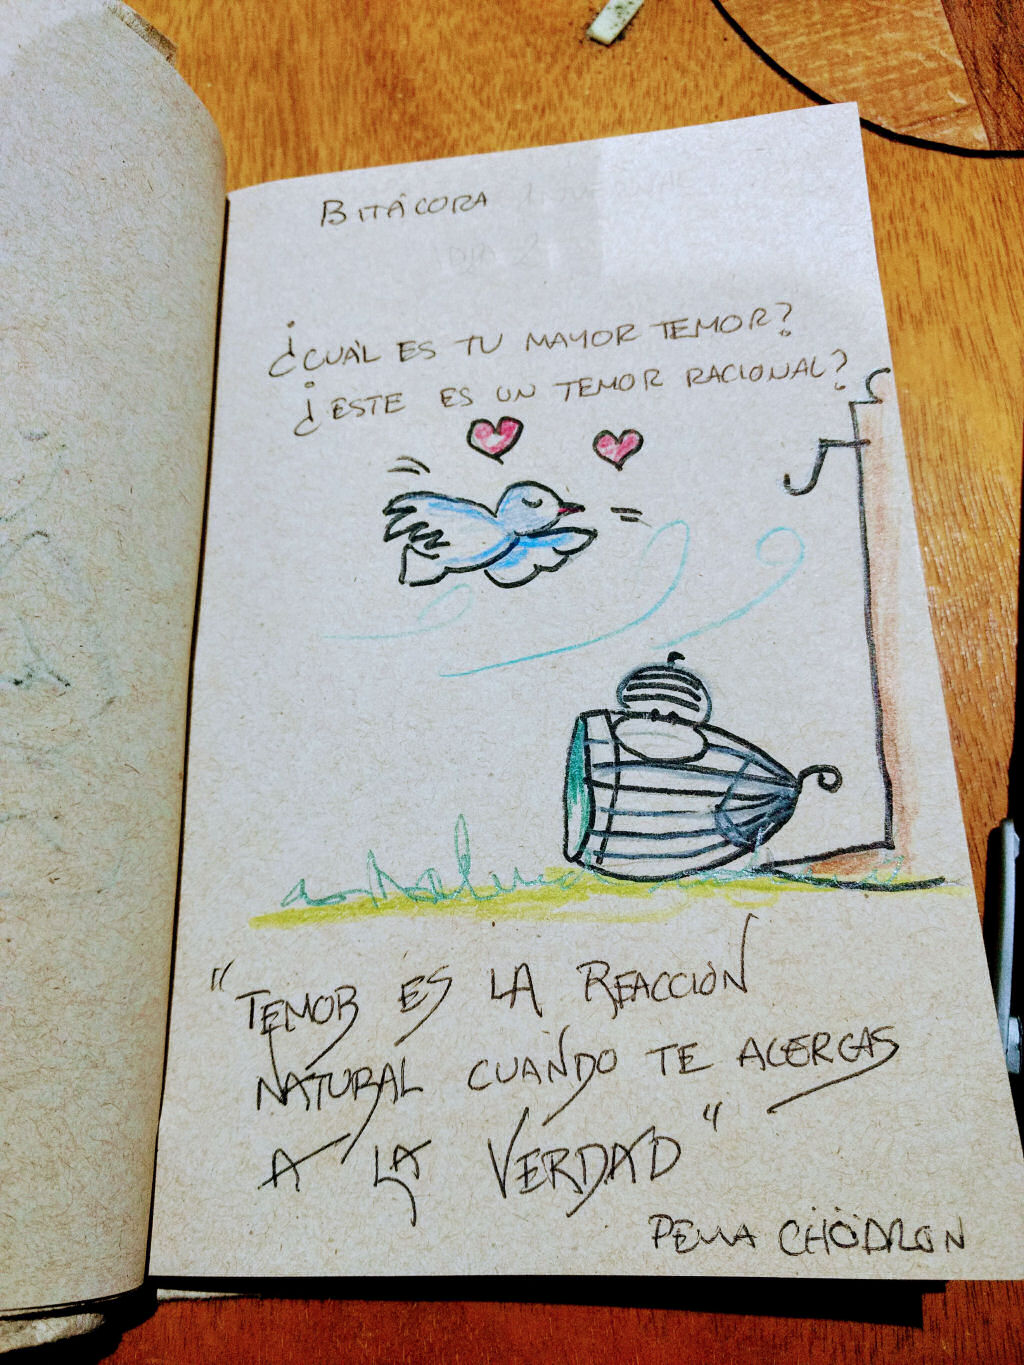 BITÁCORA
¿CUÁL ES TU MAYOR TEMOR?
¿ESTE ES UN TEMOR RACIONAL?
"TEMOR ES LA REACCIÓN
NATURAL CUANDO TE ACERCAS
A LA VERDAD"
PEMA CHÖDRON